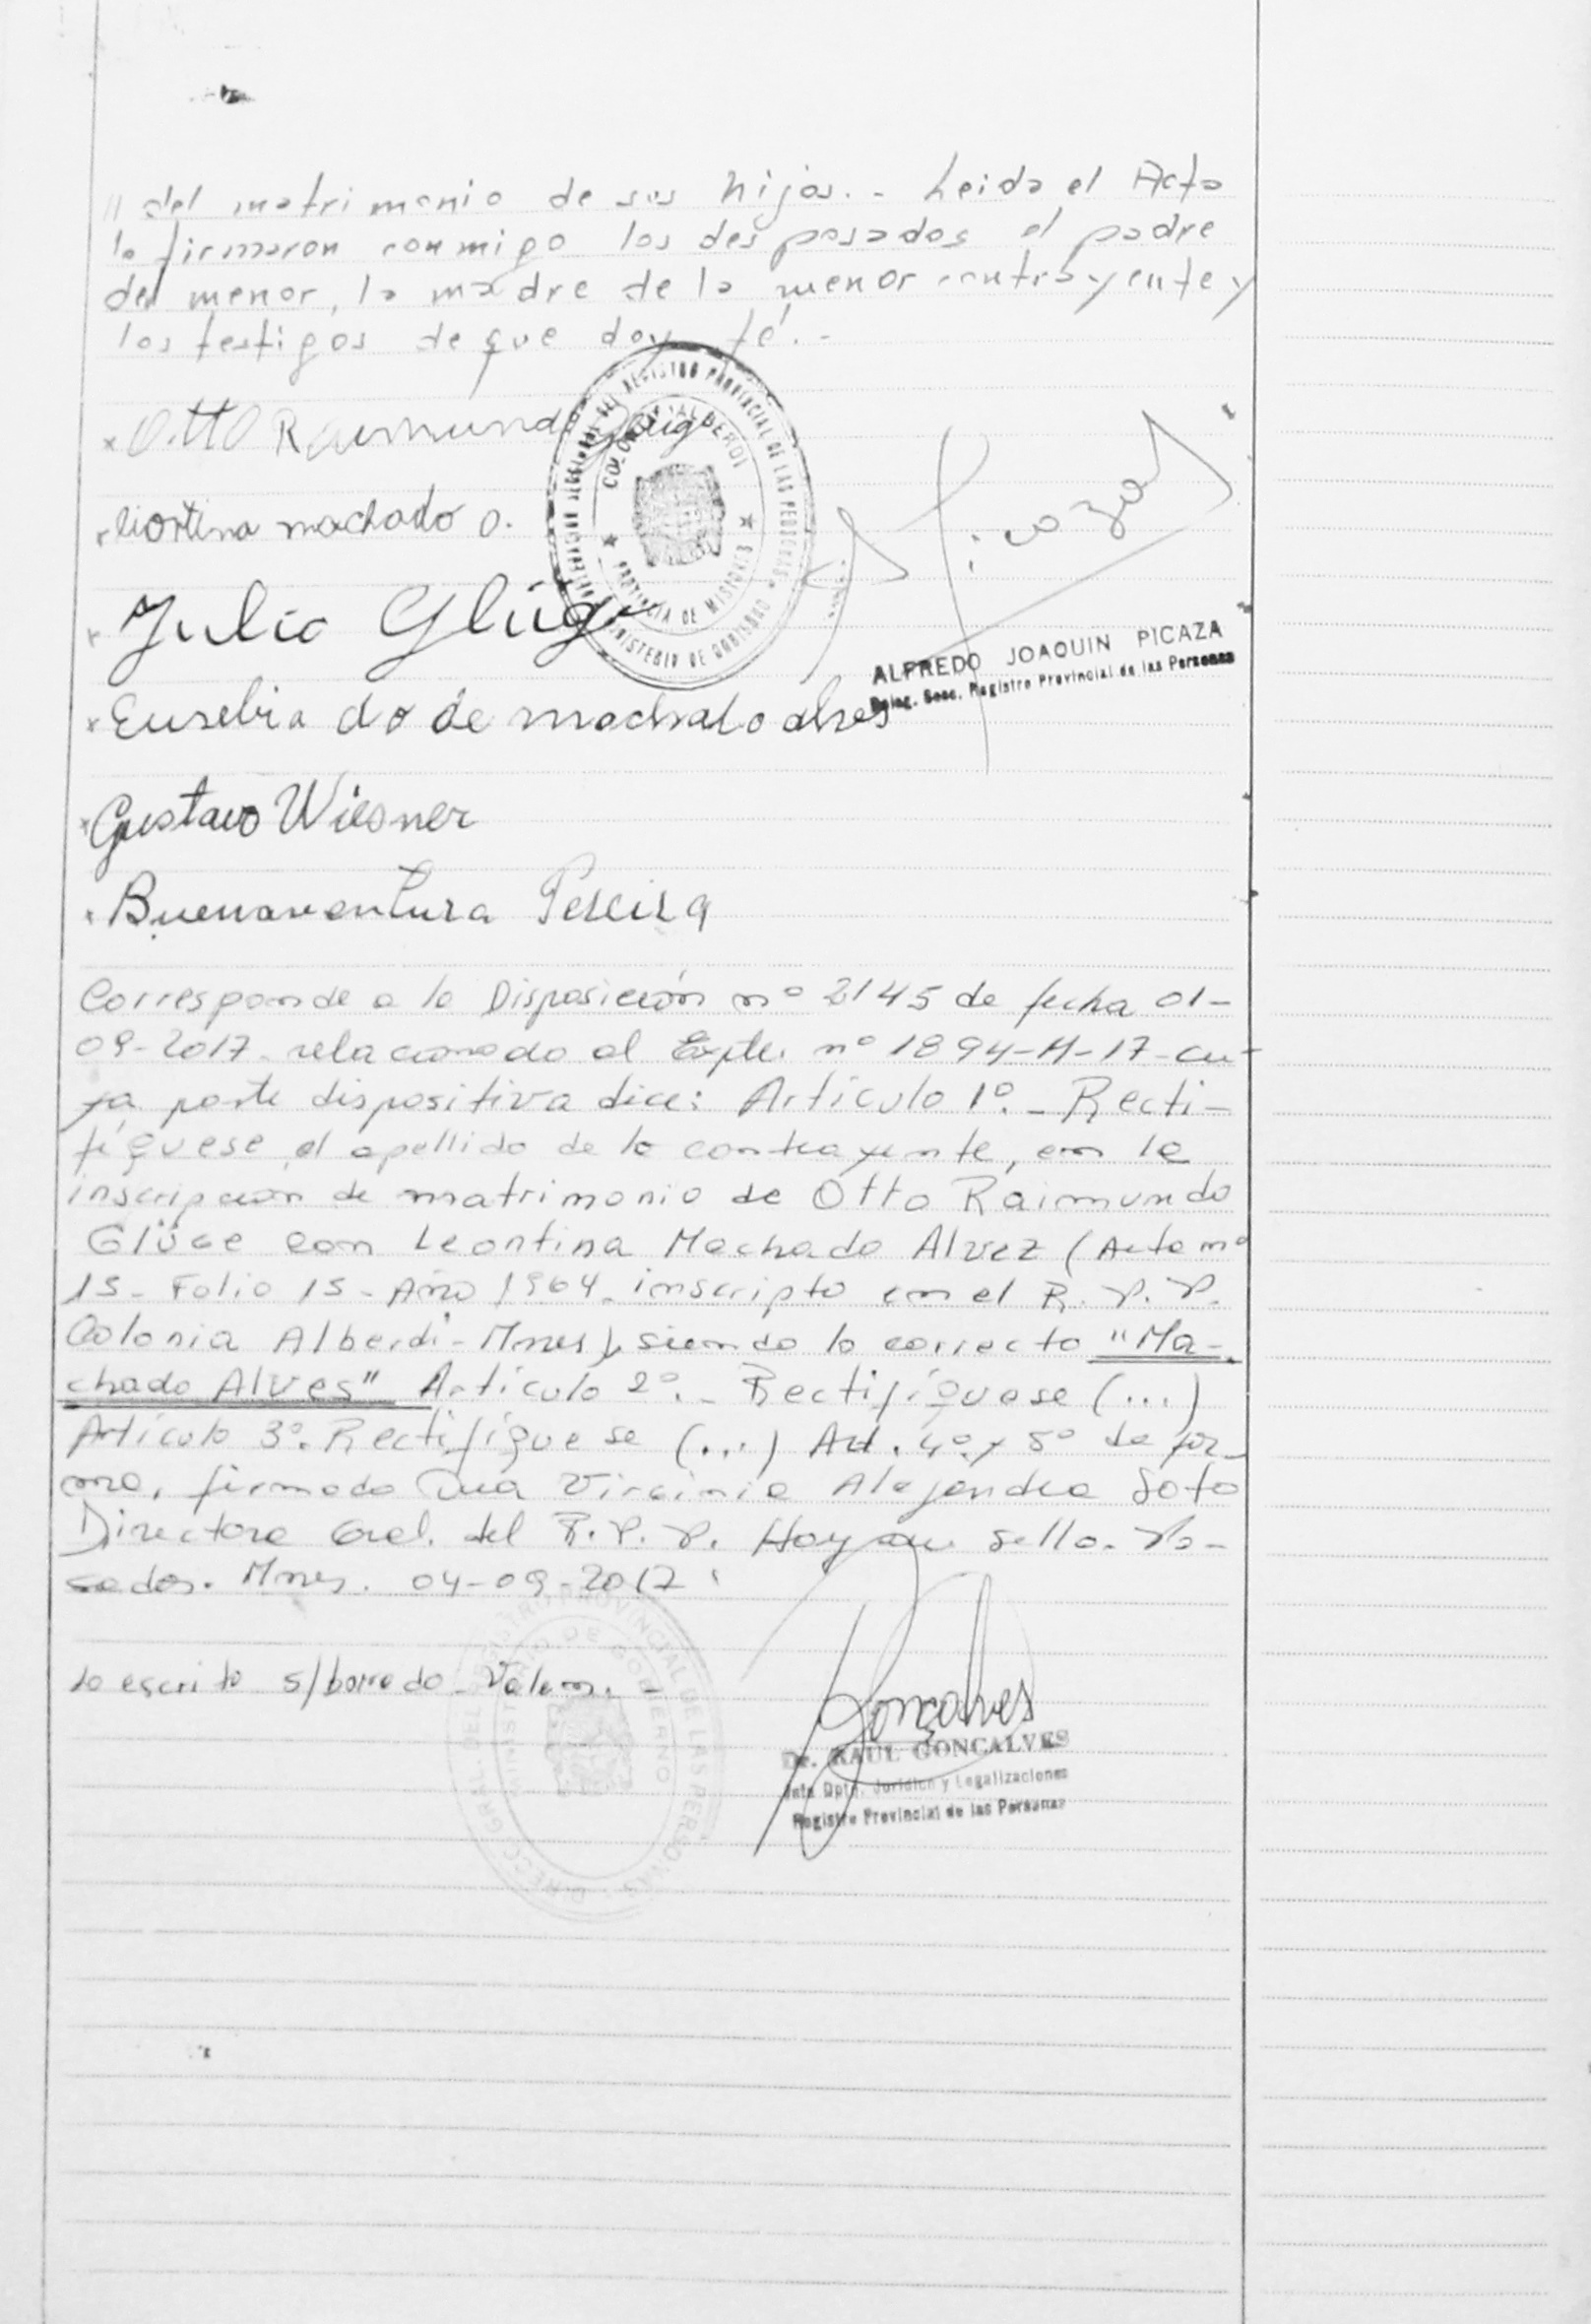 // del matrimonio de sus hijos.- Leida el Acta
la firmaron conmigo los desposados el padre
del menor, la madre de la menor contrayente y
los testigos de que doy fé.-
x Otto Raimundo Glüge
COLONIA ALBERDI
PROVINCIA DE MISIONES
REGISTRO PROVINCIAL DE LAS PERSONAS
MINISTERIO DE GOBIERNO
x liortina machado a.
Picaza
x Julio Glüge
ALFREDO JOAQUIN PICAZA
Deleg. Secc. Registro Provincial de las Personas
x Eusebia do de machado alves
x Gustavo Wiesner
x Buenaventura Pereira
Corresponde a la Disposición nº 2145 de fecha 01-
09-2017- relacionado al Expte. nº 1894-M-17-cu-
ya parte dispositiva dice: Artículo 1º.- Recti-
fíquese el apellido de la contrayente, en la
inscripción de matrimonio de Otto Raimundo
Glüge con Leontina Machado Alvez (Acta nº
15- Folio 15- Año 1964- inscripto en el R.P.P.
Colonia Alberdi-Mnes), siendo lo correcto "Ma-
chado Alves" Artículo 2º.- Rectifíquese (...)
Artículo 3º. Rectifíquese (...) Art. 4º y 5º de for-
ma, firmado Dra Virginia Alejandra Soto
Directora Gral. del R.P.P. Hay un sello. Po-
sadas. Mnes. 04-09-2017.
Lo escrito s/borrado- Valen.-
DIRECC. GRAL. DEL REGISTRO PROVINCIAL DE LAS PERSONAS
MINISTERIO DE GOBIERNO
Goncalves
Dr. RAUL GONCALVES
Jefe Dpto. Jurídico y Legalizaciones
Registro Provincial de las Personas